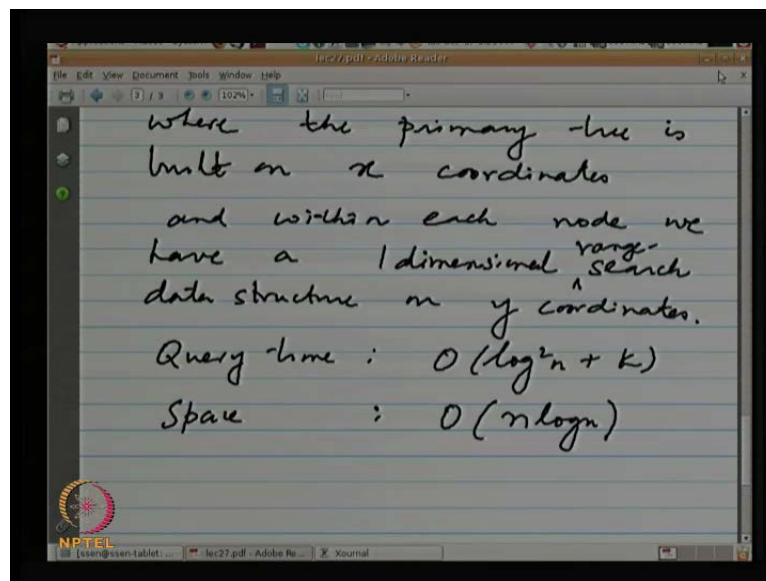 lec27.pdf - Adobe Reader
File Edit View Document Tools Window Help
3 / 3 102%
where the primary tree is
built on x coordinates
and within each node we
have a 1 dimensional range-search
data structure on y coordinates.
Query time : O(log²n + k)
Space : O(nlogn)
NPTEL
[ssen@ssen-tablet: ... lec27.pdf - Adobe Re... Xournal